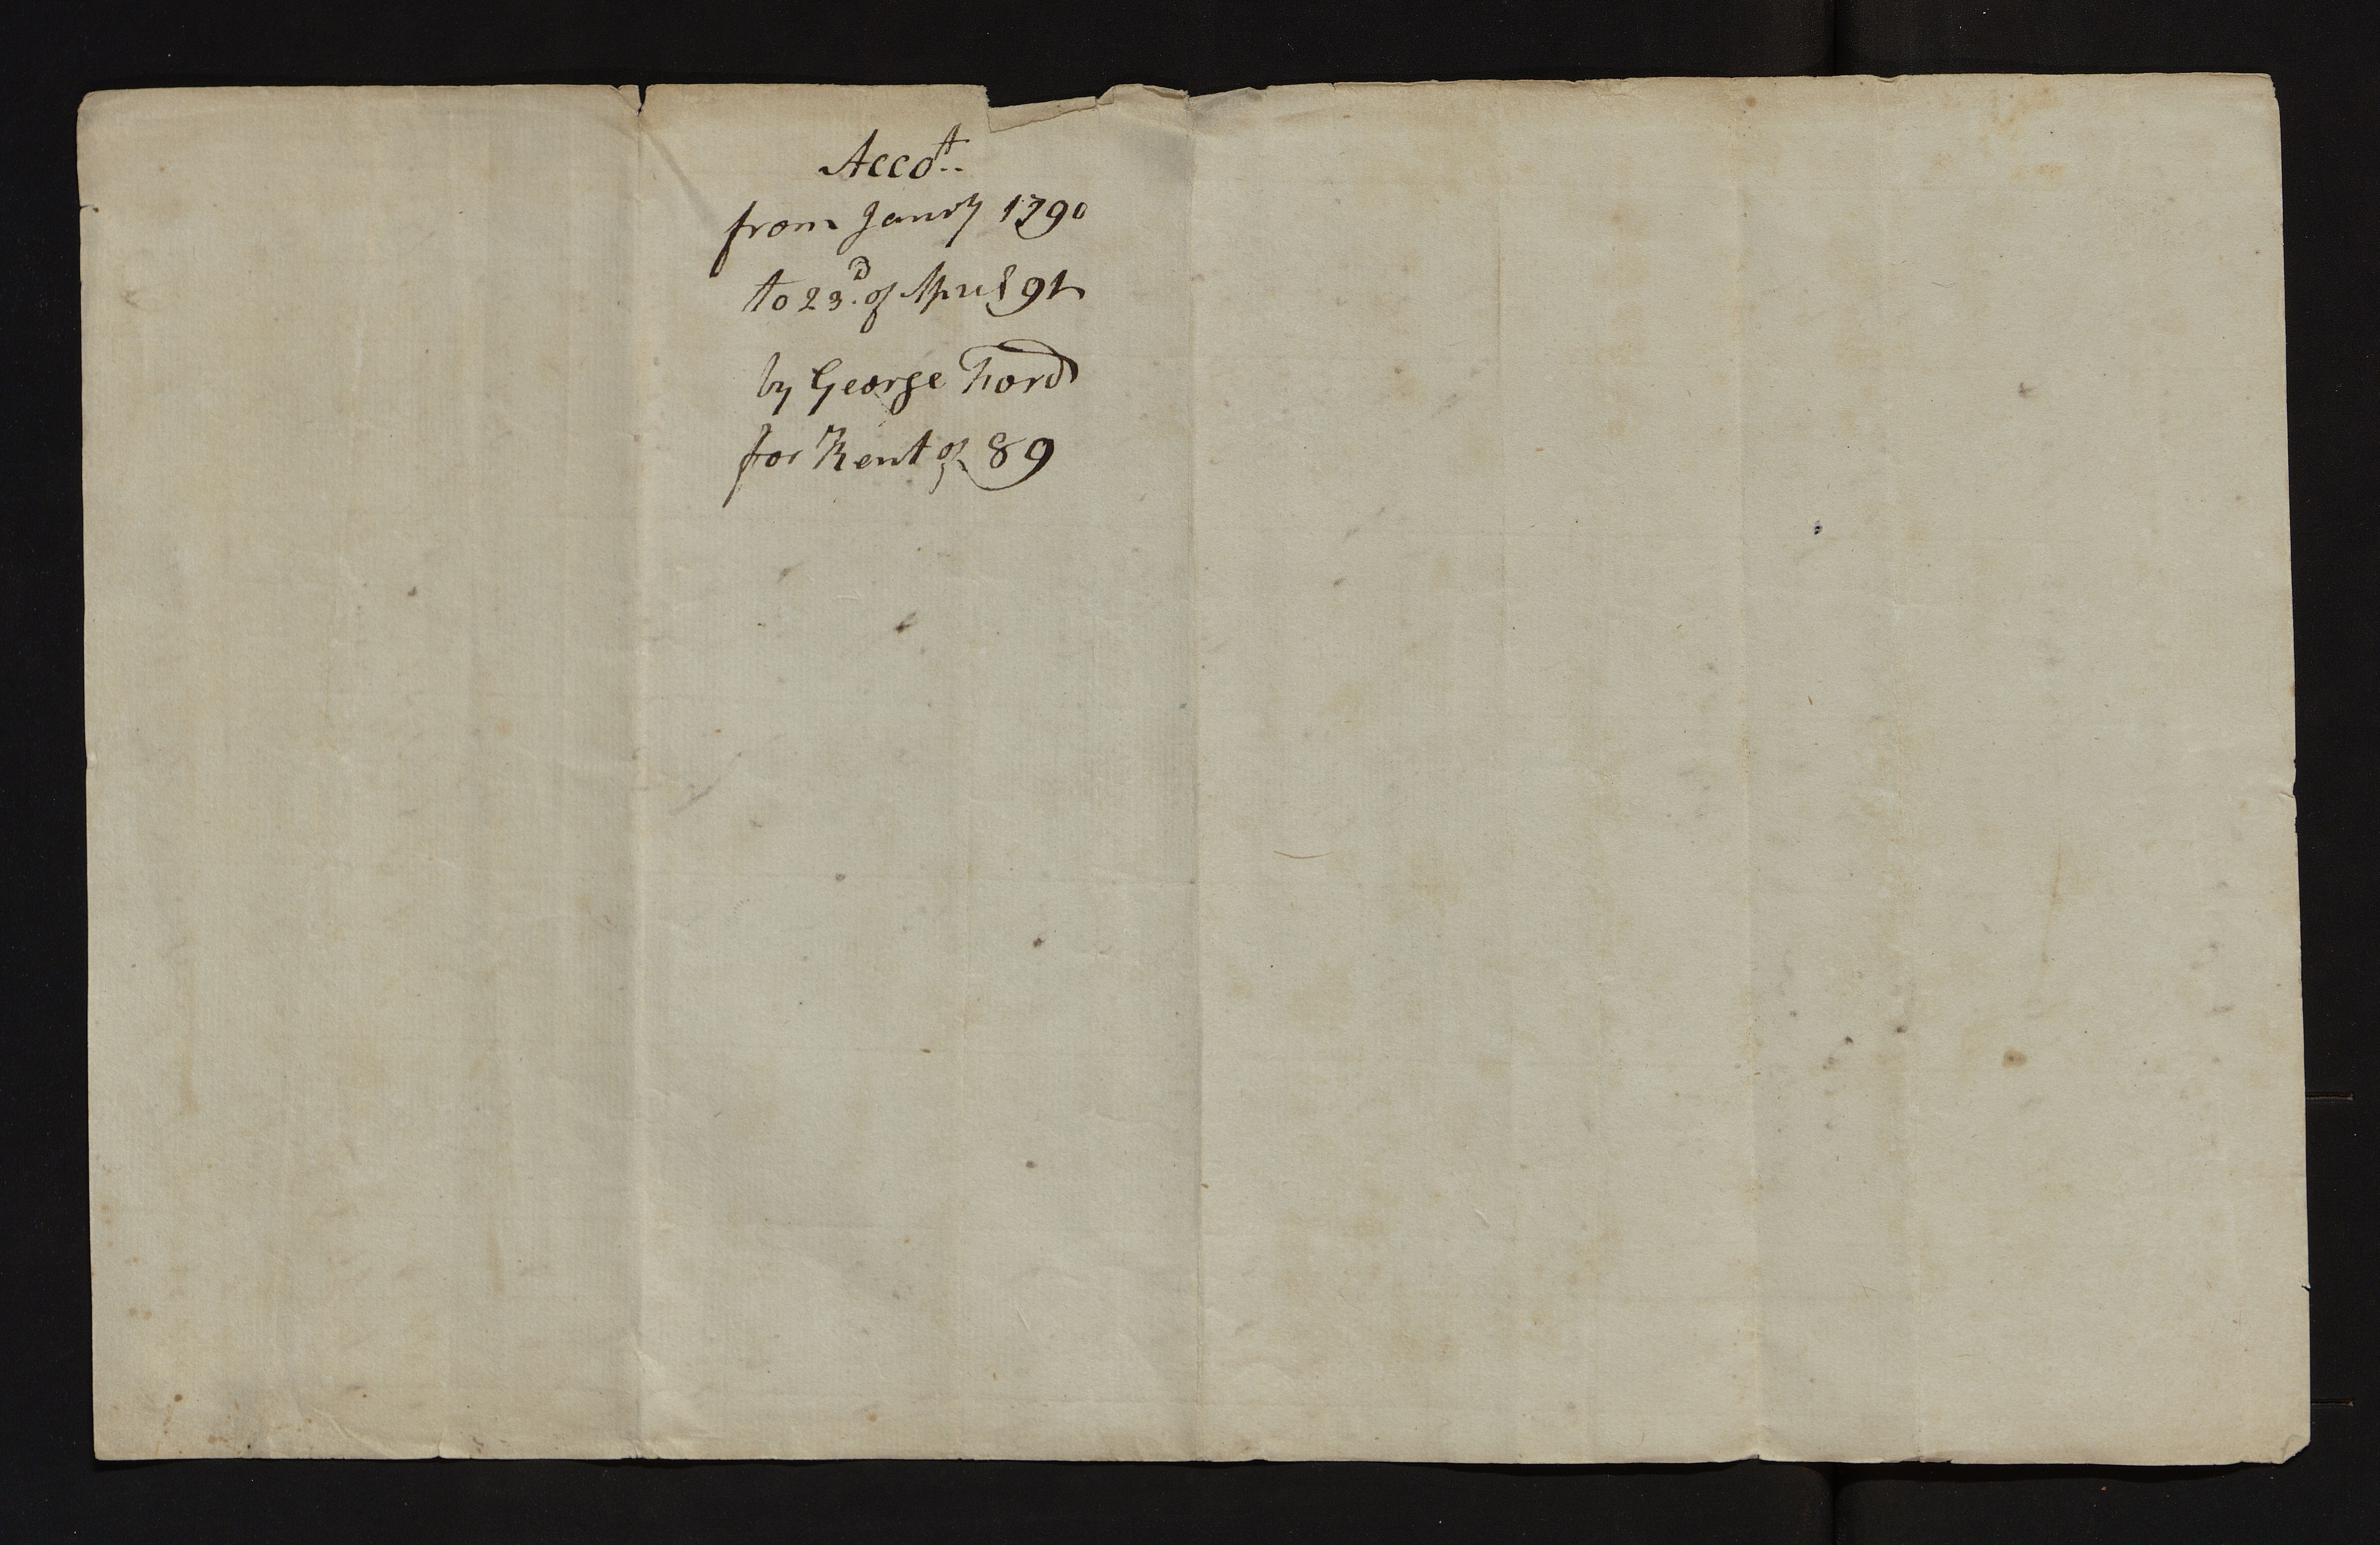 Accot..
from Janry 1790
to 23d. of April 91
by George Ford
for Rent of 89